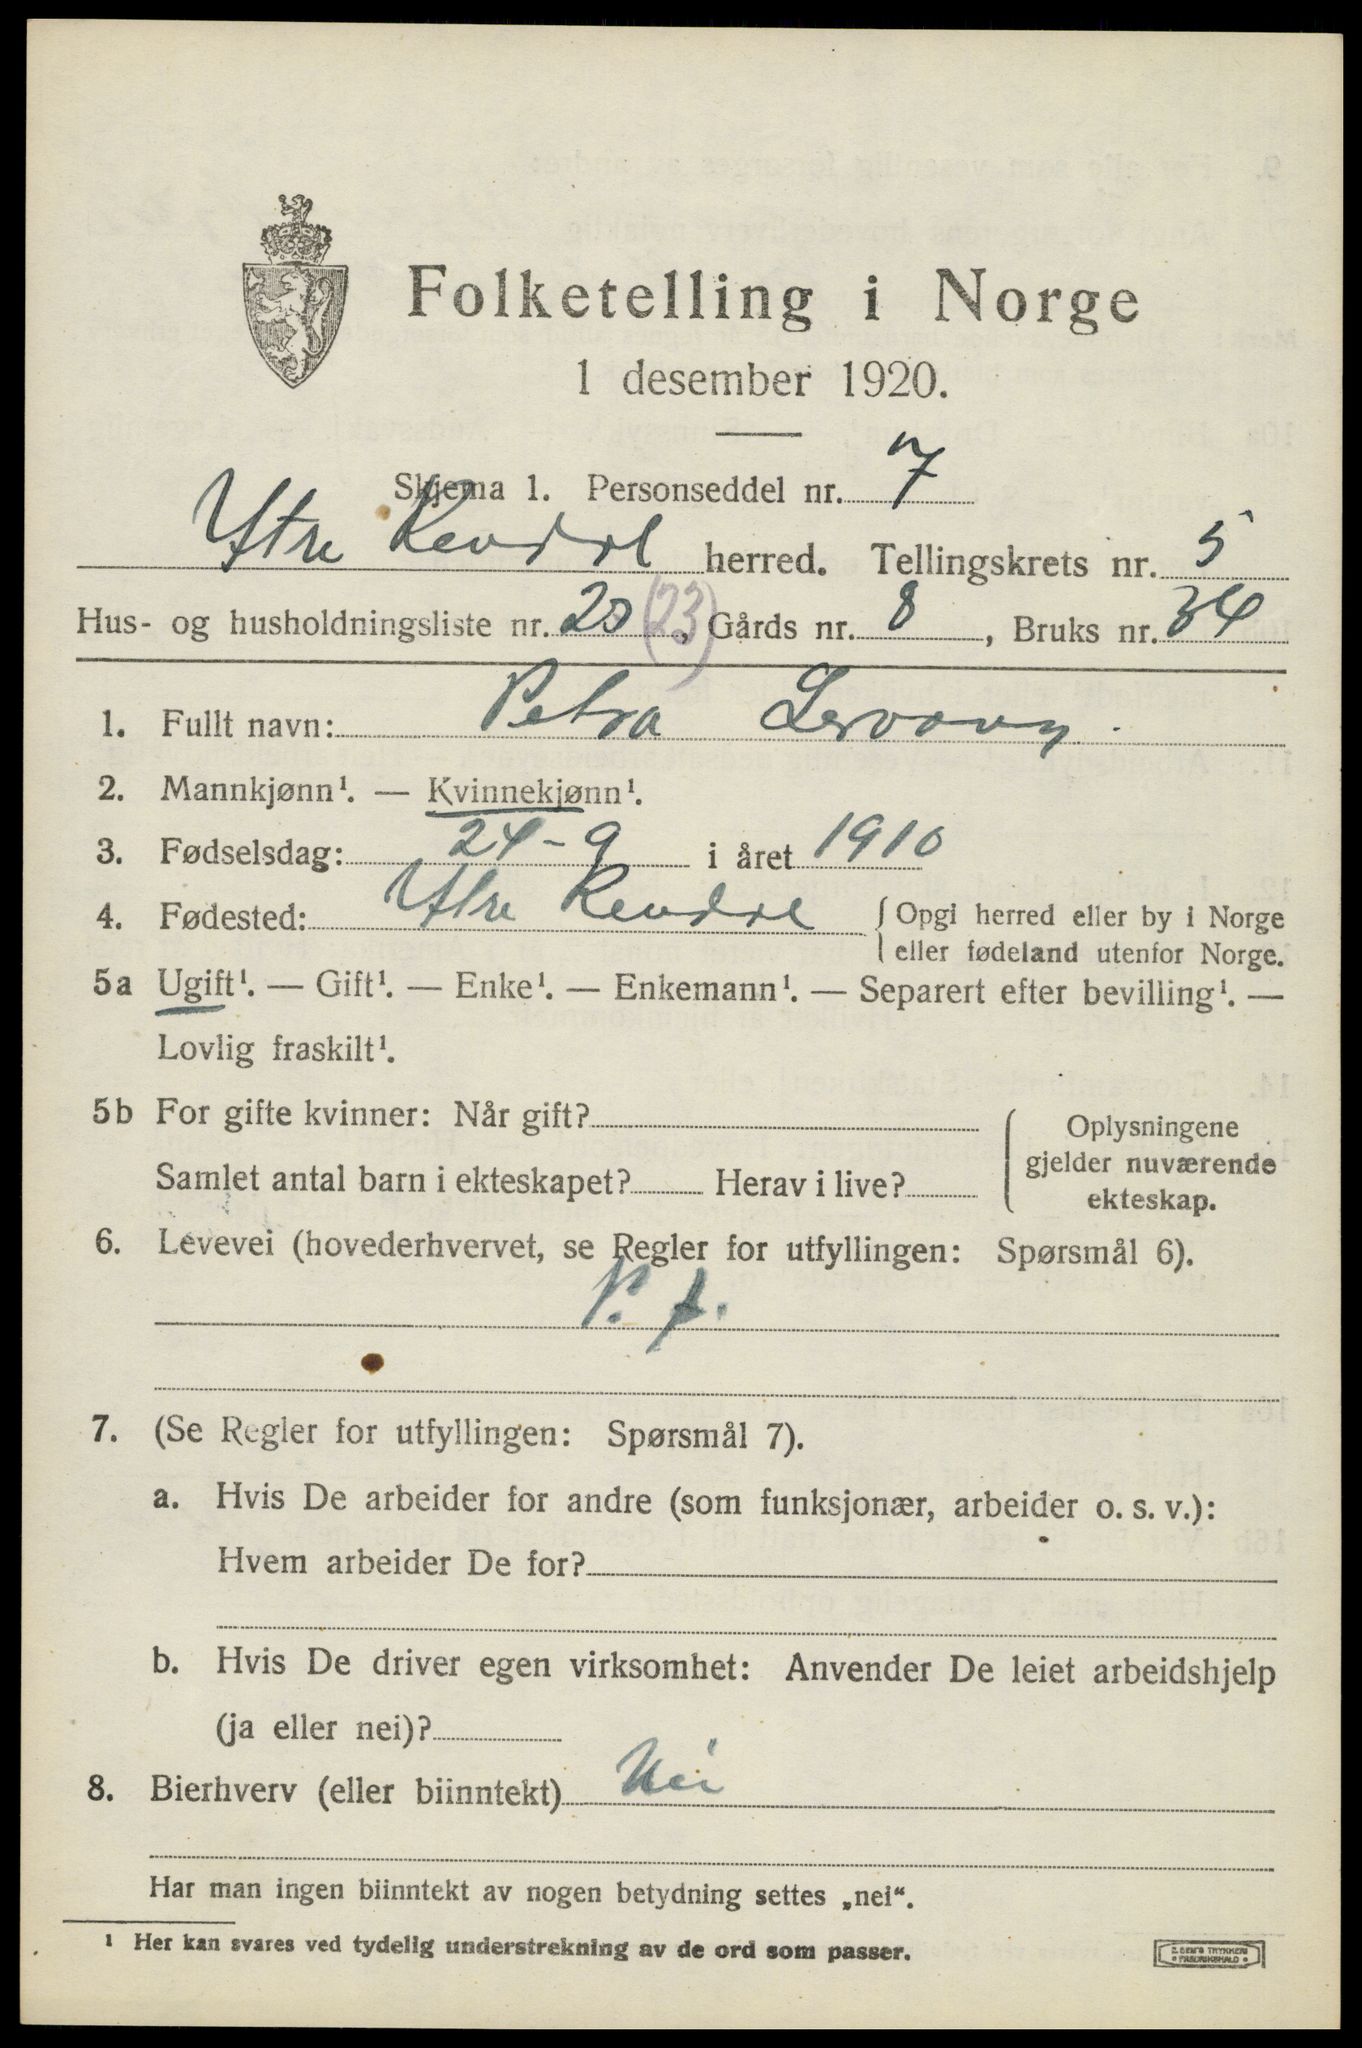 Folketelling i Norge
1 desember 1920.
Skjema 1. Personseddel nr. 7
Ytre Rendal herred. Tellingskrets nr. 5
Hus- og husholdningsliste nr. 20 (23), Gårds nr. 8, Bruks nr. 34
1. Fullt navn: Petra
2. Mannkjønn¹. — Kvinnekjønn¹.
3. Fødselsdag: 24-9 i året 1910
4. Fødested: Ytre Rendal {Opgi herred eller by i Norge
eller fødeland utenfor Norge.
5a Ugift¹. — Gift¹. — Enke¹. — Enkemann¹. — Separert efter bevilling¹. —
Lovlig fraskilt¹.
5b For gifte kvinner: Når gift?
Samlet antal barn i ekteskapet? Herav i live?
Oplysningene
gjelder nuværende
ekteskap.
6. Levevei (hovederhvervet, se Regler for utfyllingen: Spørsmål 6).
7. (Se Regler for utfyllingen: Spørsmål 7).
a. Hvis De arbeider for andre (som funksjonær, arbeider o. s. v.):
Hvem arbeider De for?
b. Hvis De driver egen virksomhet: Anvender De leiet arbeidshjelp
(ja eller nei)?
8. Bierhverv (eller biinntekt) Nei
Har man ingen biinntekt av nogen betydning settes „nei“.
¹ Her kan svares ved tydelig understrekning av de ord som passer.